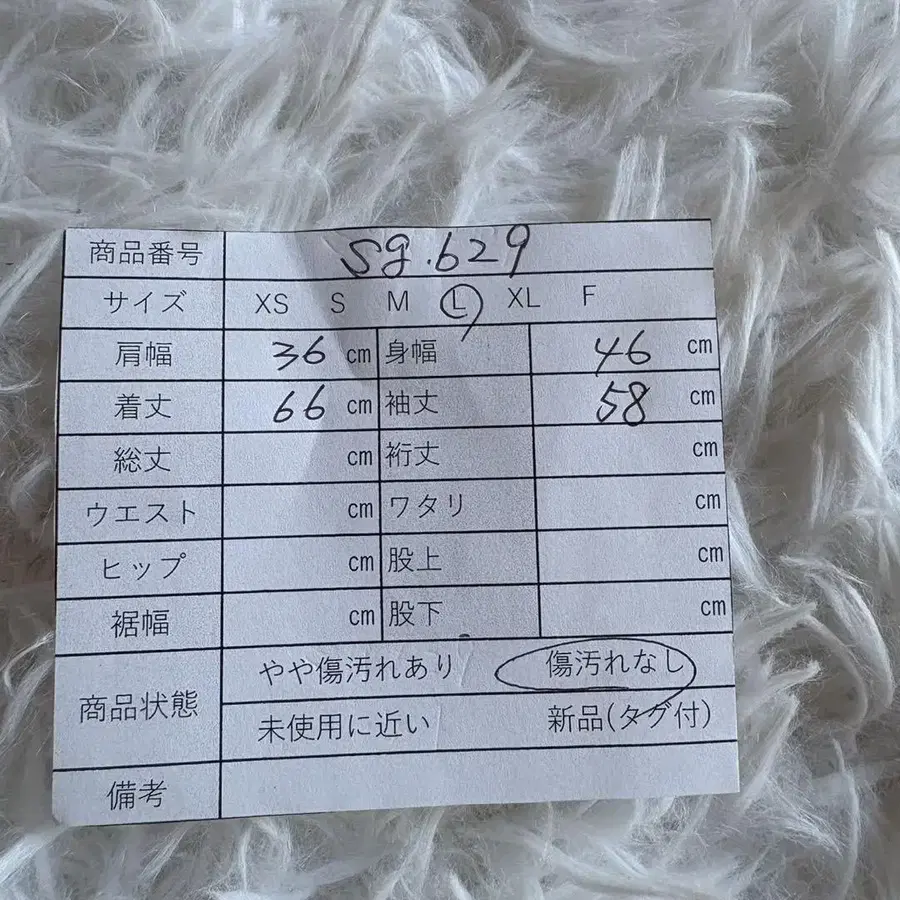 商品番号 sg.629
サイズ XS S M L XL F
肩幅 36 cm 身幅 46 cm
着丈 66 cm 袖丈 58 cm
総丈 cm 裄丈 cm
ウエスト cm ワタリ cm
ヒップ cm 股上 cm
裾幅 cm 股下 cm
商品状態 やや傷汚れあり 傷汚れなし
未使用に近い 新品(タグ付)
備考